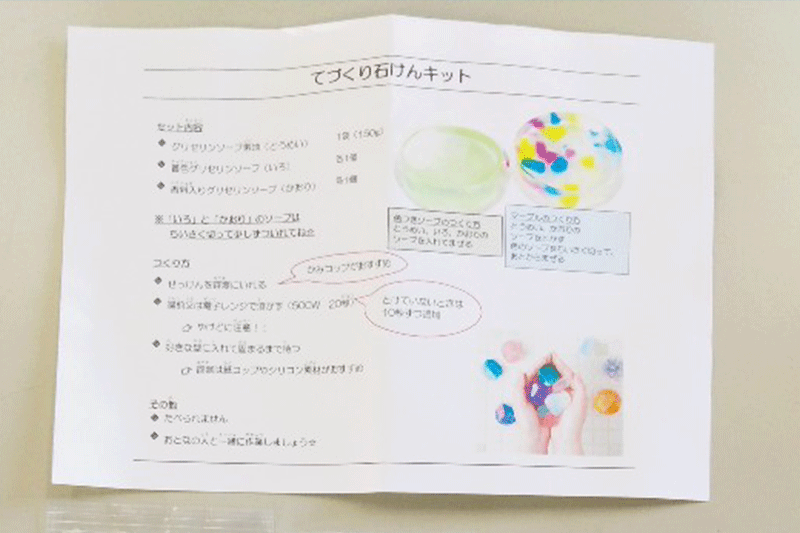 てづくり石けんキット
セット内容
◆ グリセリンソープ素地（とうめい） 1袋（150g）
◆ 着色グリセリンソープ（いろ） 各1個
◆ 香料入りグリセリンソープ（かおり） 各1個
※「いろ」と「かおり」のソープは
ちいさく切って少しずついれてね☆
つくり方
◆ せっけんを容器にいれる
かみコップがおすすめ
◆ 湯煎又は電子レンジで溶かす（500W 20秒）
とけていないときは
10秒ずつ追加
やけどに注意！！
◆ 好きな型に入れて固まるまで待つ
容器は紙コップやシリコン素材がおすすめ
その他
◆ たべられません
◆ おとなの人と一緒に作業しましょう☆
色つきソープのつくり方
とうめい、いろ、かおりの
ソープを入れてまぜる
マーブルのつくり方
とうめい、かおりの
ソープをとかす
色のソープをちいさく切って、
あとからまぜる